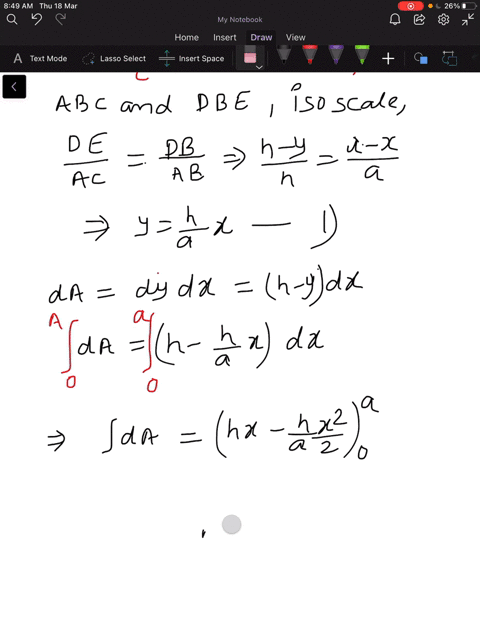 8:49 AM Thu 18 Mar 26%
My Notebook
Home Insert Draw View
A Text Mode Lasso Select Insert Space
ABC and DBE, isoscale,
DE/AC = DB/AB ⇒ h-y/h = x-x/a
⇒ y = h/a x — 1)
dA = dy dx = (h-y)dx
∫₀ᴬ dA = ∫₀ᵃ (h - h/a x) dx
⇒ ∫dA = (hx - h/a x²/2)₀ᵃ